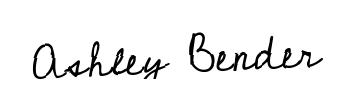 Ashley Bender